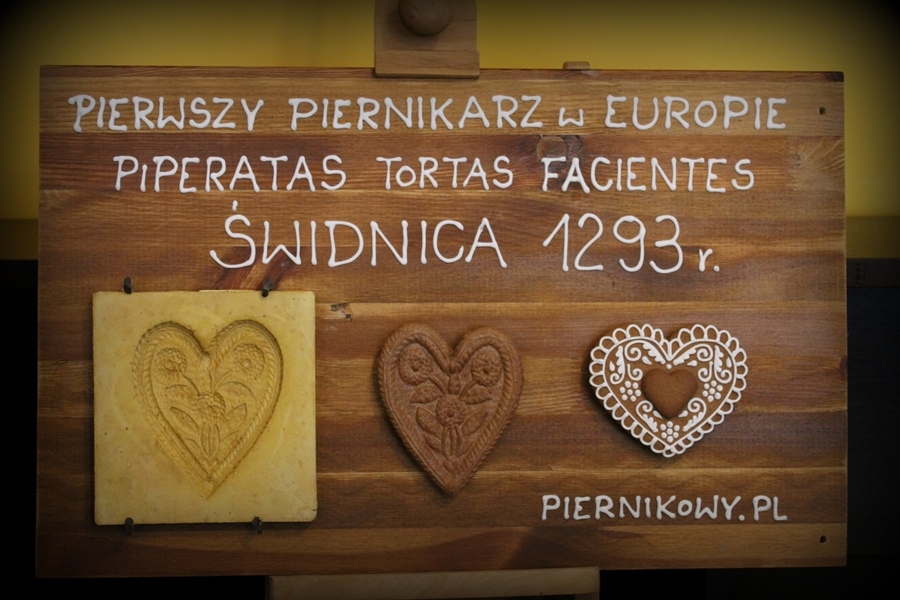 PIERWSZY PIERNIKARZ w EUROPIE
PiPERATAS ToRTAS FACIENTES
ŚWIDNICA 1293 r.
PIERNIKOWY.PL